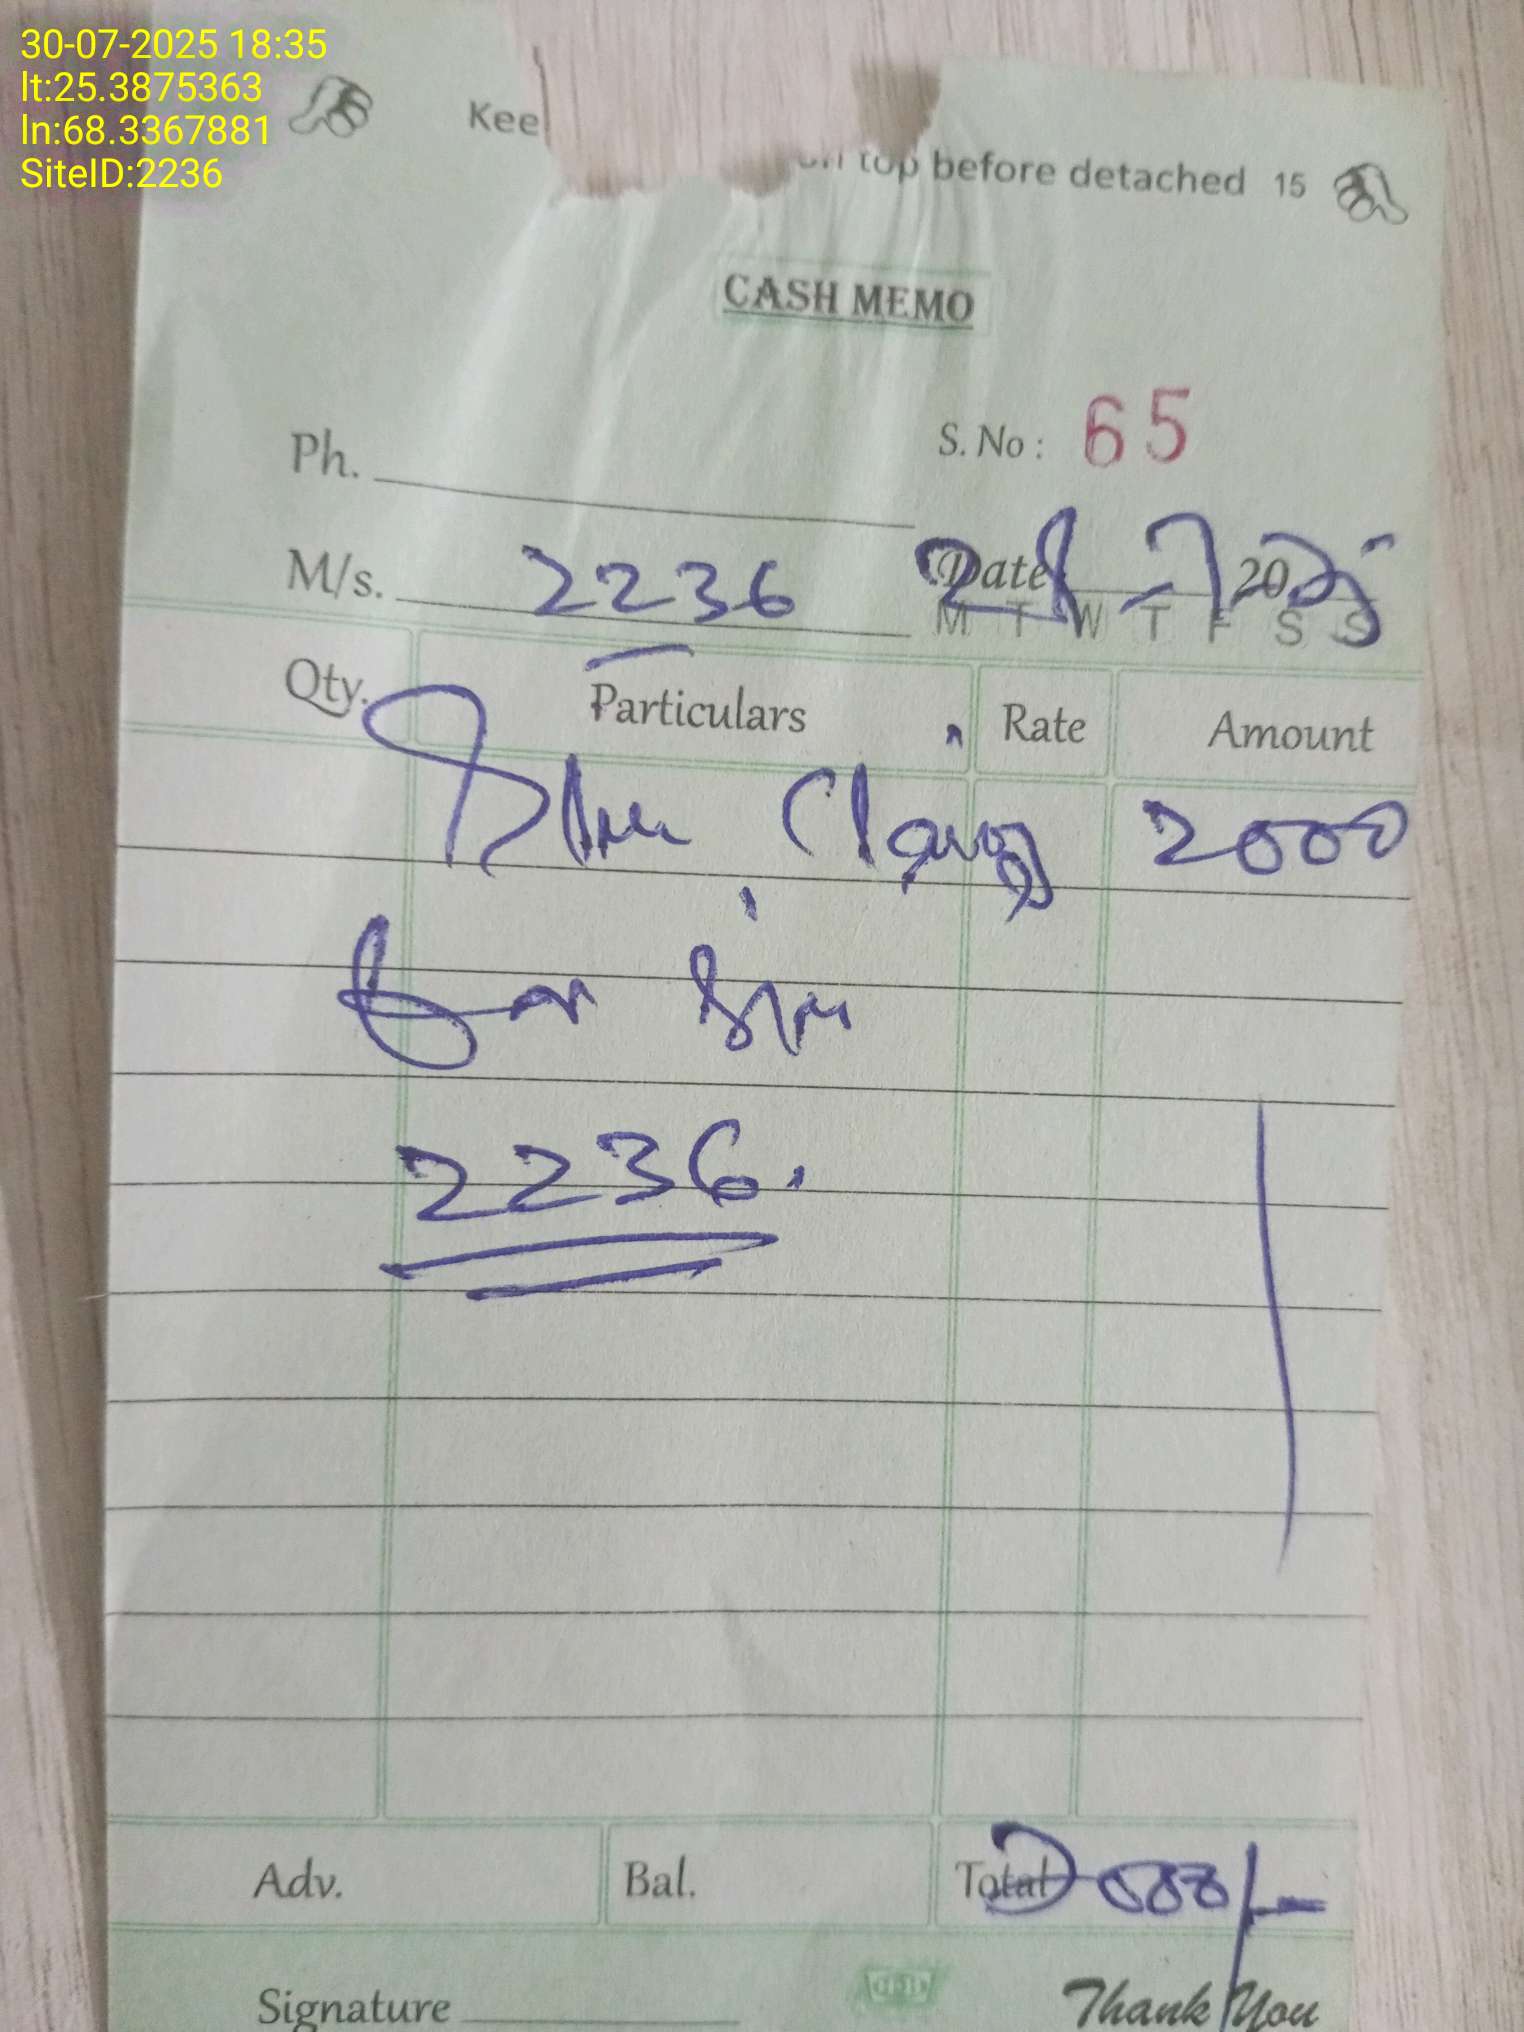 30-07-2025 18:35
lt:25.3875363
ln:68.3367881
SiteID:2236
Kee
on top before detached 15
CASH MEMO
Ph.
S. No : 65
M/s. 2236
Date 28-7 2025
M T W T F S S
Qty. Particulars Rate Amount
2000
for
2236.
Adv. Bal. Total 2000/-
Signature
Thank You